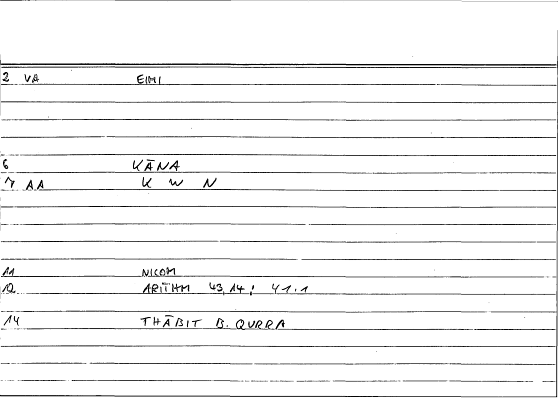 2 VA EIMI
6 KĀNA
7 AA K W N
11 NICOM
12 ARITHM 43,14; 41.1
14 THĀBIT B. QURRA